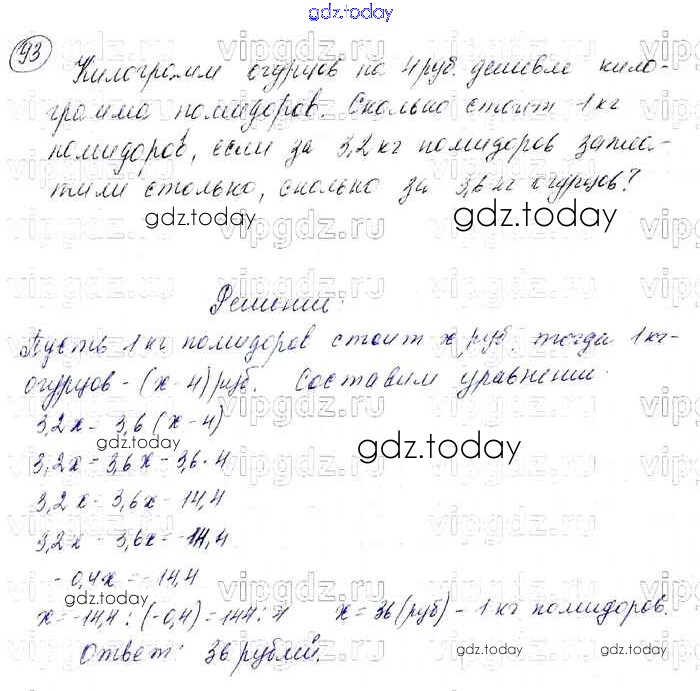 gdz.today
93
Килограмм огурцов на 4 руб. дешевле кило-
грамма помидоров. Сколько стоит 1 кг
помидоров, если за 3,2 кг помидоров запла-
тили столько, сколько за 3,6 кг огурцов?
gdz.today
gdz.today
Решение:
Пусть 1 кг помидоров стоит x руб, тогда 1 кг-
огурцов - (x-4) руб. Составим уравнение.
3,2x = 3,6(x-4)
gdz.today
gdz.today
3,2x = 3,6x - 3,6·4
3,2x = 3,6x - 14,4
3,2x - 3,6x = -14,4
-0,4x = -14,4
gdz.today
x = -14,4 : (-0,4) = 144 : 4 x = 36 (руб) - 1 кг помидоров.
Ответ: 36 рублей.
gdz.today
gdz.today
vipgdz.ru